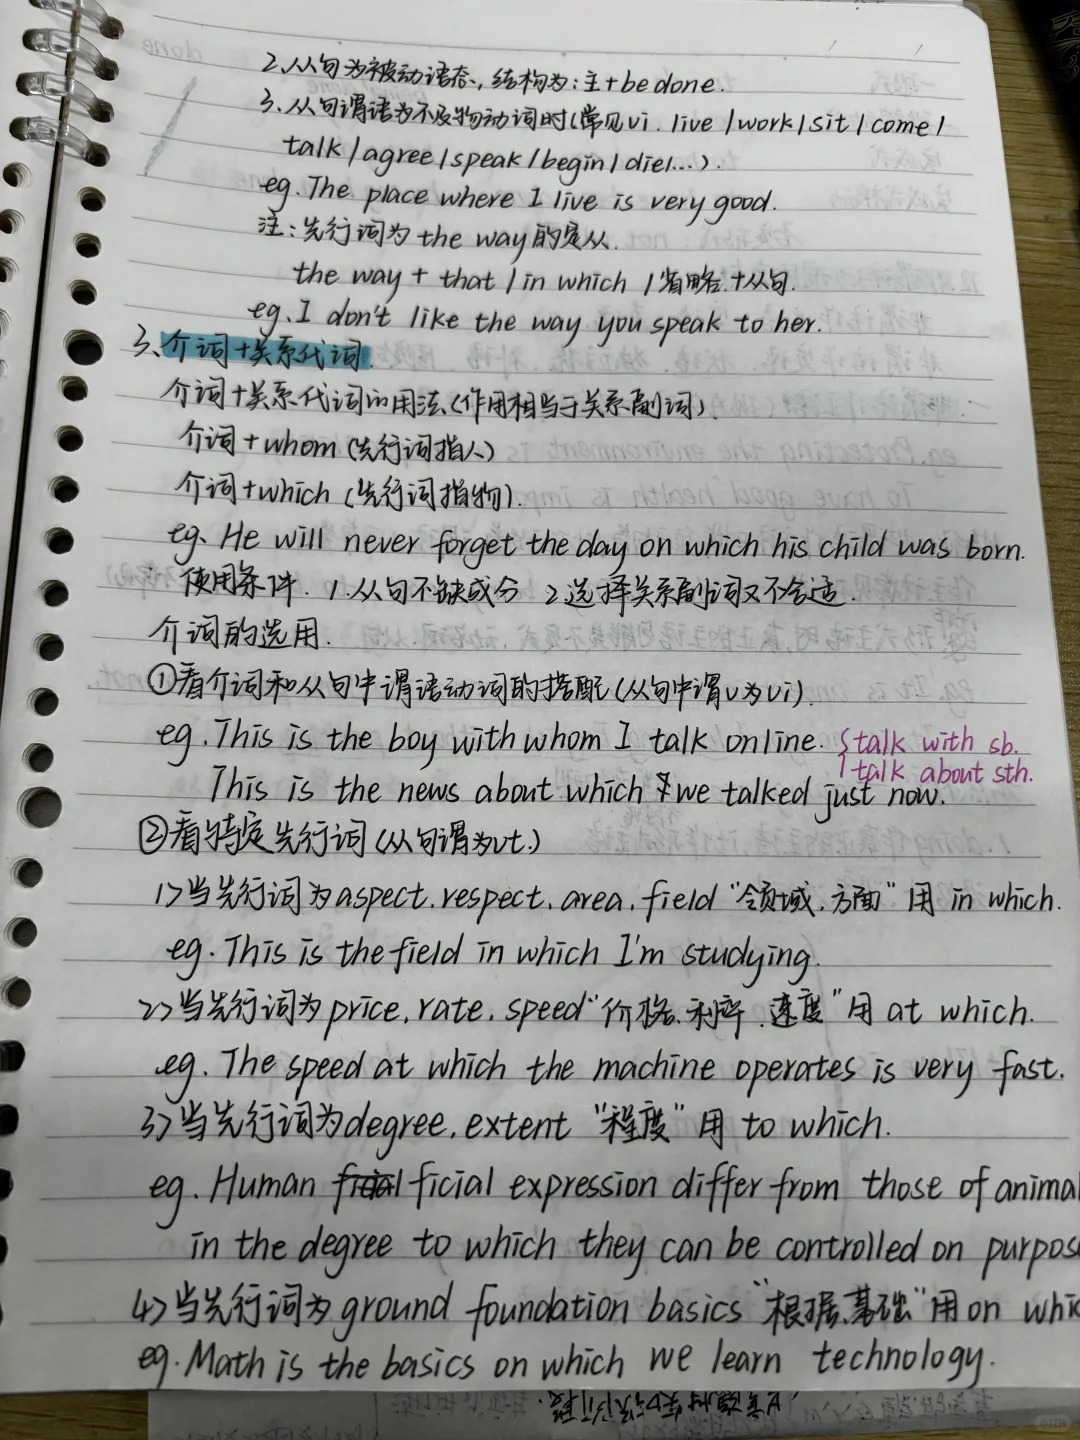 2、从句为被动语态，结构为：主+be done.
3、从句谓语为不及物动词时(常见vi. live/work/sit/come/
talk/agree/speak/begin/die/...).
eg. The place where I live is very good.
注：先行词为 the way的定从.
the way + that / in which / 省略 + 从句.
eg. I don't like the way you speak to her.
3、介词+关系代词.
介词+关系代词的用法(作用相当于关系副词).
介词+whom (先行词指人)
介词+which (先行词指物).
eg. He will never forget the day on which his child was born.
使用条件. 1.从句不缺成分 2.选择关系副词又不合适.
介词的选用.
①看介词和从句中谓语动词的搭配(从句中谓v为vi).
eg. This is the boy with whom I talk online. {talk with sb.
talk about sth.
This is the news about which we talked just now.
②看特定先行词(从句谓为vt.)
1>当先行词为aspect, respect, area, field "领域、方面" 用 in which.
eg. This is the field in which I'm studying.
2>当先行词为price, rate, speed "价格、利率、速度" 用 at which.
eg. The speed at which the machine operates is very fast.
3>当先行词为degree, extent "程度" 用 to which.
eg. Human ficial expression differ from those of animal
in the degree to which they can be controlled on purpos
4>当先行词为ground foundation basics "根据、基础" 用 on whic
eg. Math is the basics on which we learn technology.